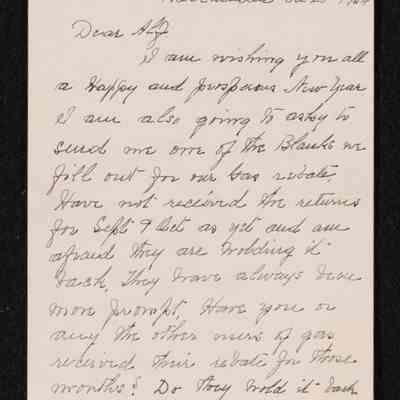 Dear Alf
I am wishing you all
a Happy and prosperous New Year
I am also going to ask y to
send me one of the Blanks we
fill out for our Gas rebate,
Have not received the returns
for Sept & Oct as yet and am
afraid they are holding it
back, They have always been
more prompt, Have you or
any the other users of gas
received their rebate for those
months? Do they hold it back